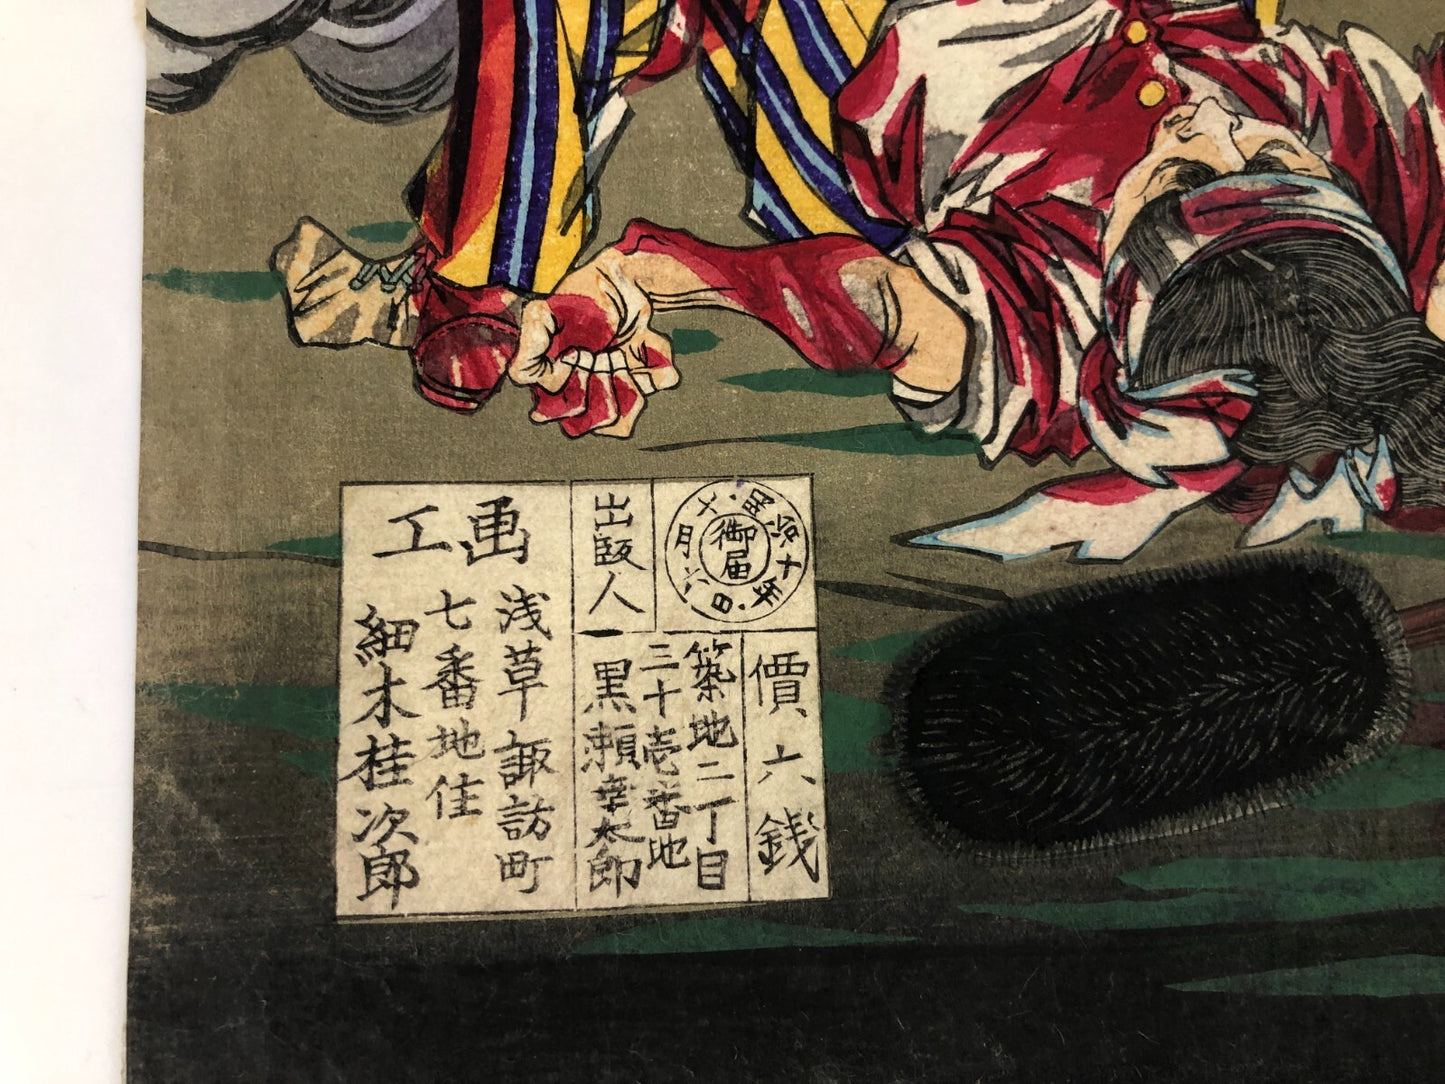 御届
明治十年
十月六日
價六銭
出版人
築地二丁目
三十壱番地
黒瀬幸太郎
画工
浅草諏訪町
七番地住
細木桂次郎